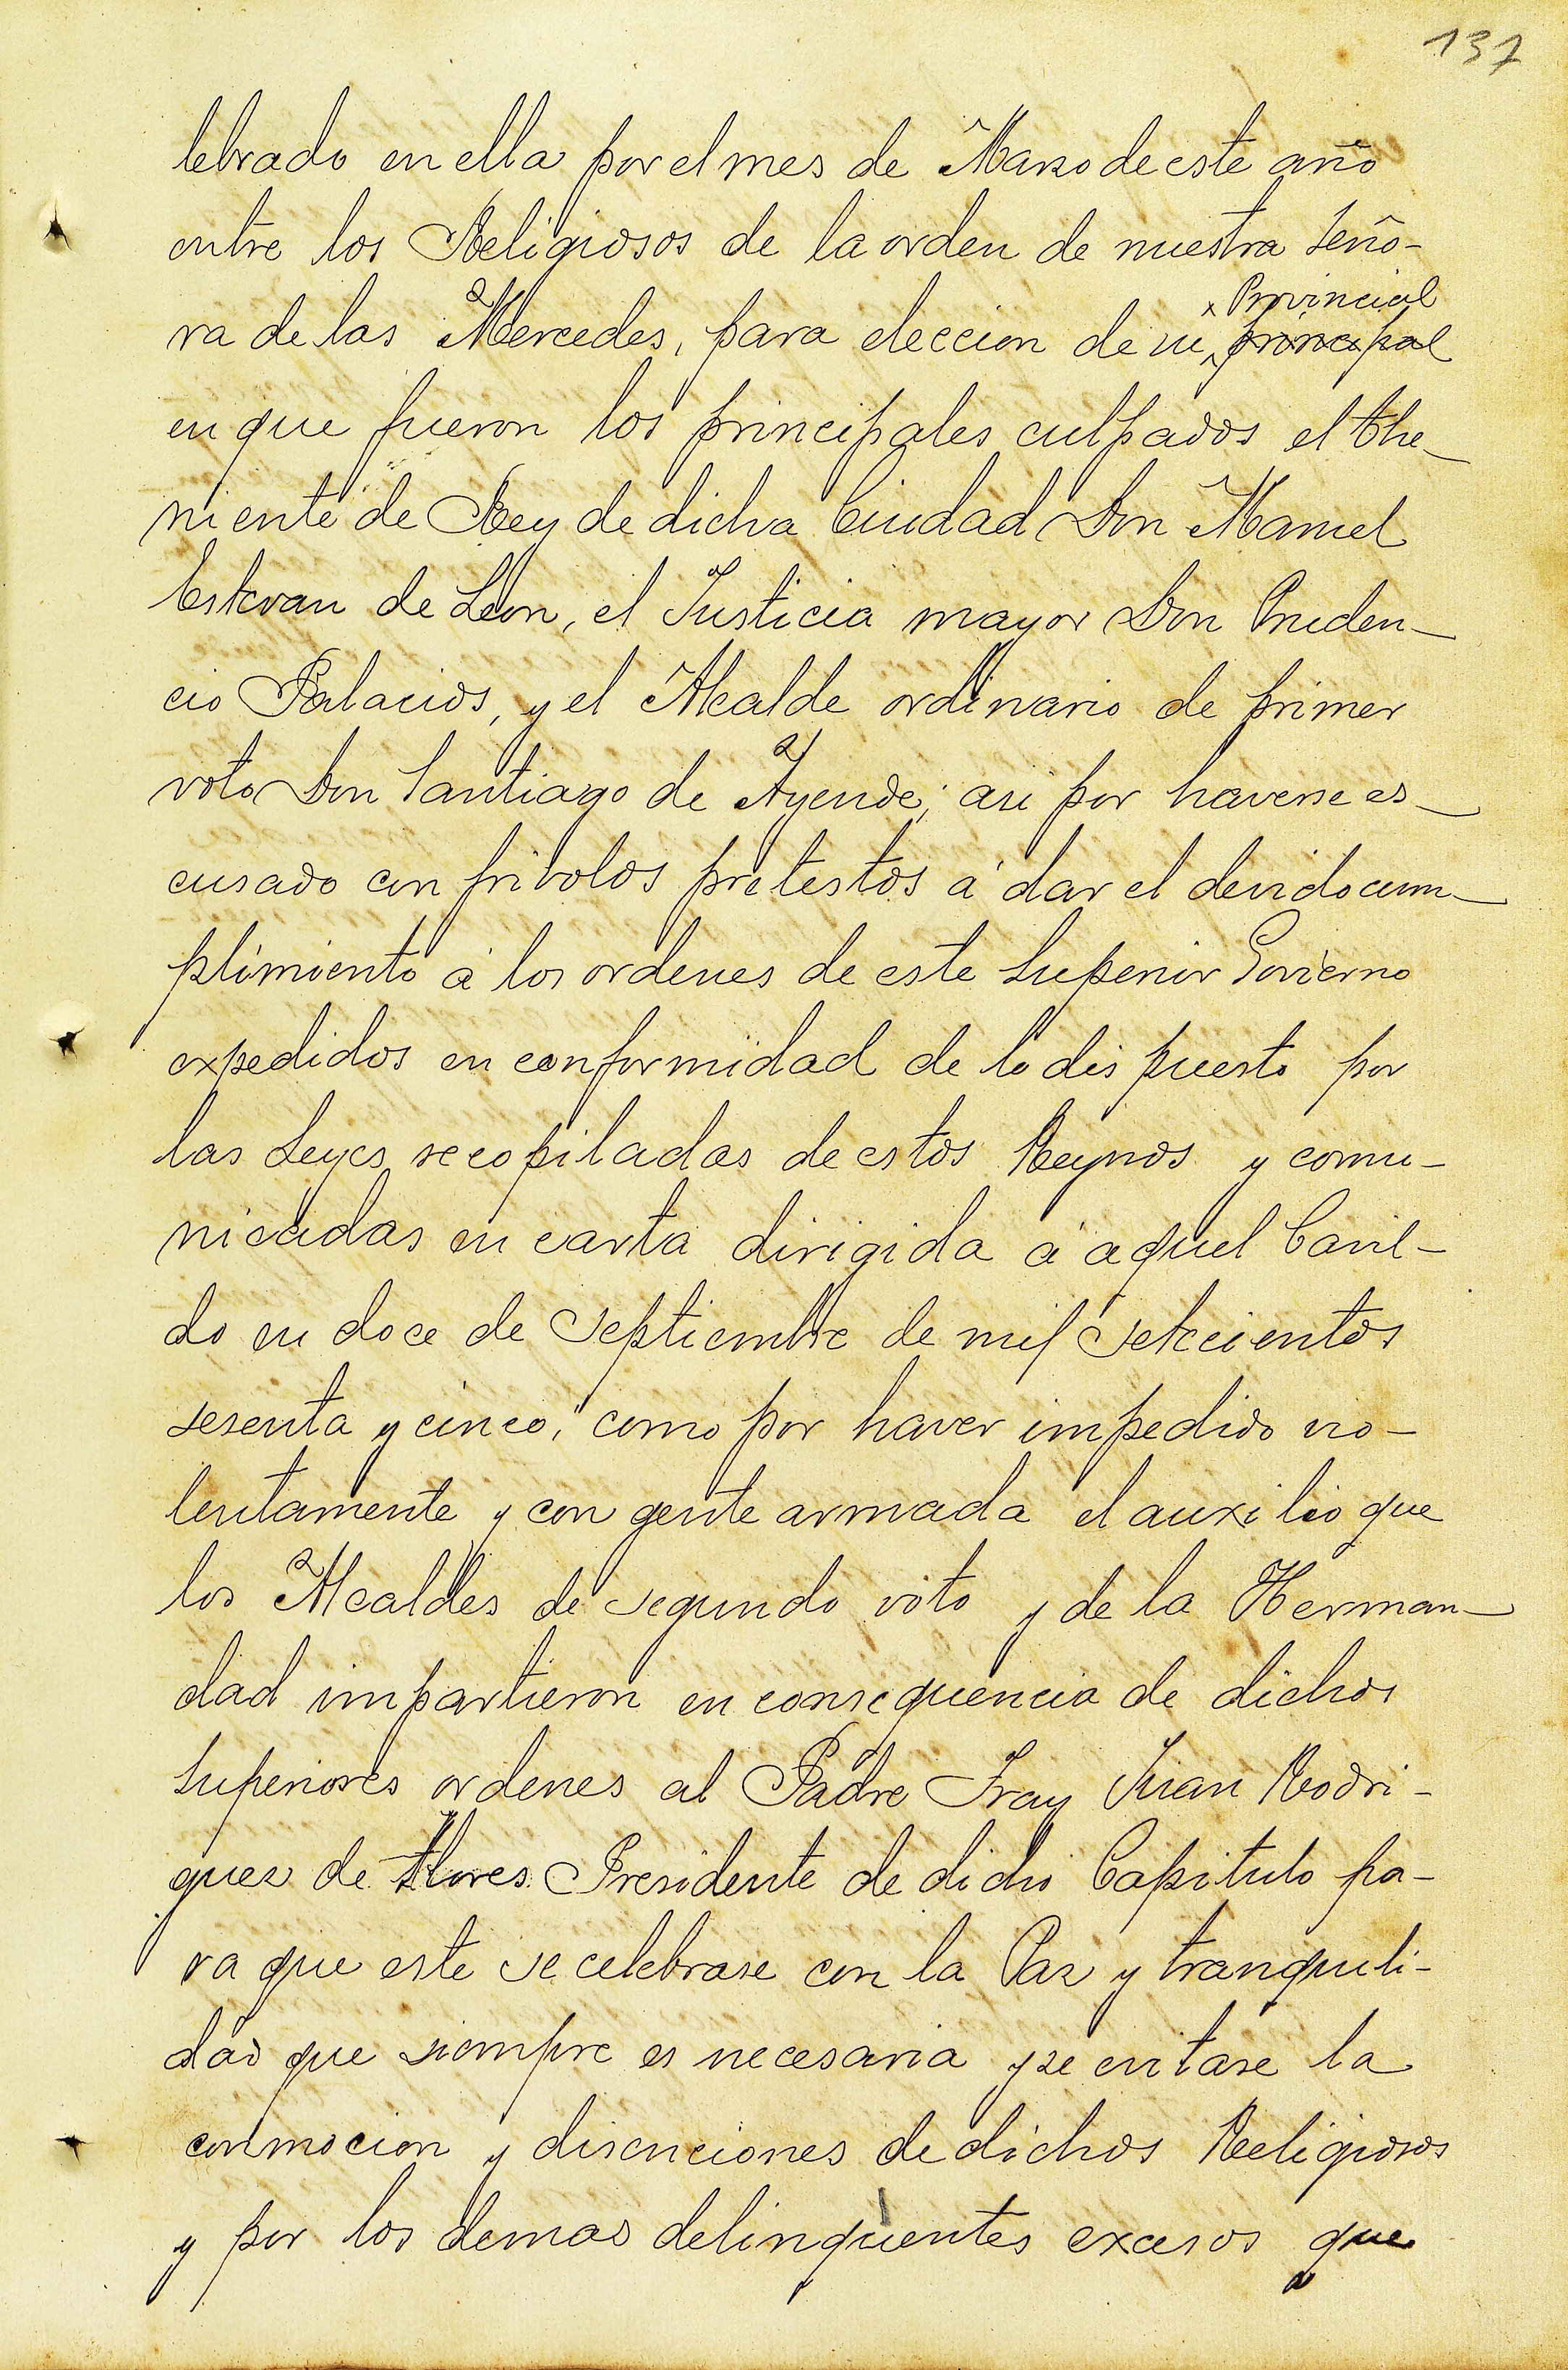 137
lebrado en ella por el mes de Marzo de este año
entre los Religiosos de la orden de nuestra Seño-
ra de las Mercedes, para eleccion de su principal
Provincial
en que fueron los principales culpados el The-
niente de Rey de dicha Ciudad Don Manuel
Estevan de Leon, el Justicia mayor Don Pruden-
cio Palacios, y el Alcalde ordinario de primer
voto Don Santiago de Ayende; asi por haverse es-
cusado con fribolos pretestos á dar el devido cum-
plimiento á los ordenes de este Superior Govierno
expedidos en conformidad de lo dispuesto por
las Leyes recopiladas de estos Reynos y comu-
nicadas en carta dirigida á aquel Cavil-
do en doce de Septiembre de mil setecientos
sesenta y cinco, como por haver impedido vio-
lentamente y con gente armada el auxilio que
los Alcaldes de segundo voto y de la Herman-
dad impartieron en consequencia de dichos
Superiores ordenes al Padre Fray Juan Rodri-
guez de Flores Presidente de dicho Capitulo pa-
ra que este se celebrase con la Paz y tranquili-
dad que siempre es necesaria y se evitase la
conmocion y disenciones de dichos Religiosos
y por los demas delinquentes excesos que